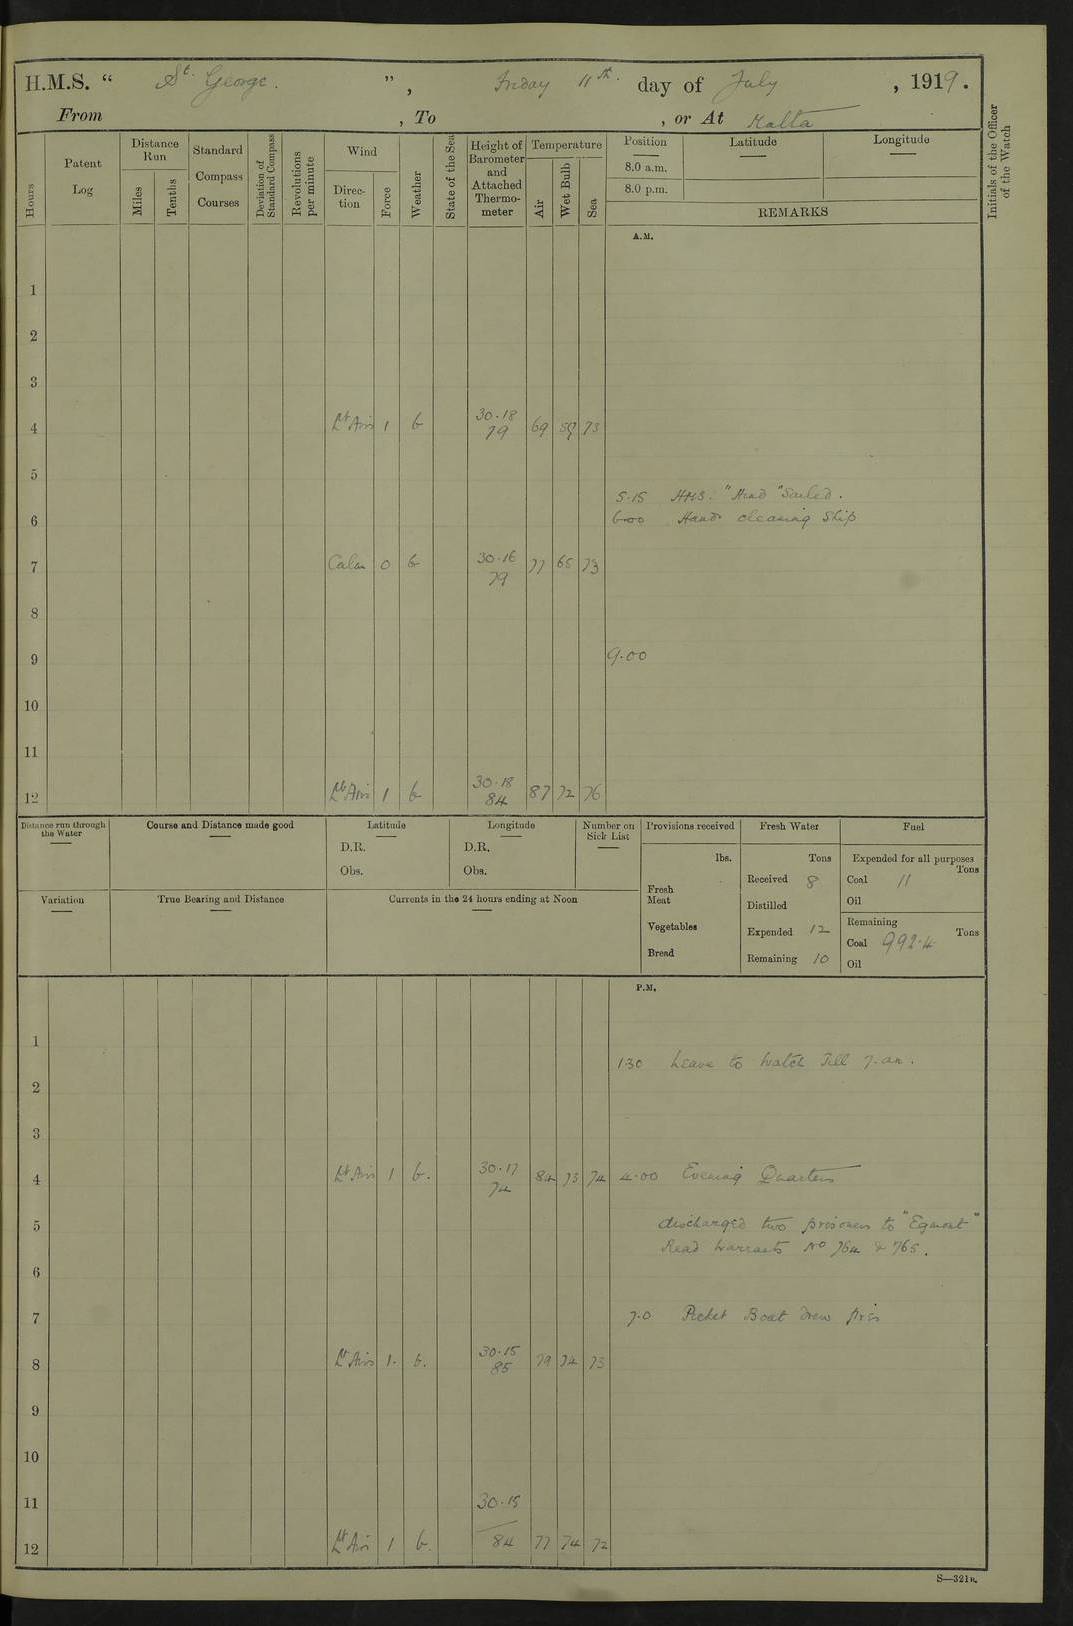 H.M.S. “ St. George. ”, Friday 11th. day of July, 1919.
From , To , or At Malta
Hours
Patent Log
Distance Run
Miles
Tenths
Standard Compass Courses
Deviation of Standard Compass
Revolutions per minute
Wind
Direc-tion
Force
Weather
State of the Sea
Height of Barometer and Attached Thermo-meter
Temperature
Air
Wet Bulb
Sea
Position
8.0 a.m.
8.0 p.m.
Latitude
Longitude
REMARKS
Initials of the Officer of the Watch
A.M.
1
2
3
4 Lt Airs 1 b 30.18 79 69 59 73
5
5.15 HMS. "Hind" Sailed.
6 6.00 Hands cleaning Ship
7 Calm 0 b 30.16 79 77 65 73
8
9 9.00
10
11
12 Lt Airs 1 b 30.18 84 87 72 76
Distance run through the Water
Course and Distance made good
Latitude
D.R.
Obs.
Longitude
D.R.
Obs.
Number on Sick List
Provisions received
lbs.
Fresh Meat
Vegetables
Bread
Fresh Water
Tons
Received 8
Distilled
Expended 12
Remaining 10
Fuel
Expended for all purposes
Tons
Coal 11
Oil
Remaining
Tons
Coal 992.4
Oil
Variation
True Bearing and Distance
Currents in the 24 hours ending at Noon
P.M.
1
1.30 Leave to Watch Till 7.am.
2
3
4 Lt Airs 1 b. 30.17 74 84 73 74 4.00 Evening Quarters
5 discharged two prisoners to "Egmont"
Read Warrants No 764 & 765.
6
7 7.0 Picket Boat drew fires
8 Lt Airs 1. b. 30.15 85 79 74 73
9
10
11 30.15
12 Lt Airs 1 b. 84 77 74 72
S—321B.